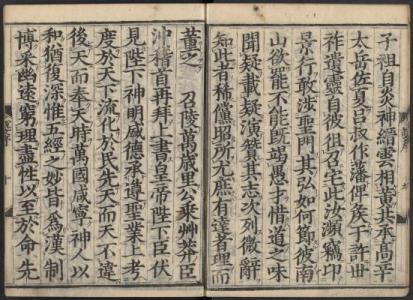 子祖自炎神縉雲相黃共承高辛
太岳佐夏呂叔作藩俾矦于許世
祚遺靈自彼徂召宅此汝瀕竊卬
景行敢涉聖門其弘如何節彼南
山欲罷不能旣竭愚才惜道之味
聞疑載疑演贊其志次列微辭
知此者稀儻昭所尤庶有達者理而
董之 召陵萬歲里公乘艸莽臣
沖稽首再拜上書皇帝陛下臣伏
見陛下神明盛德承遵聖業上考
度於天下流化於民先天而天不違
後天而奉天時萬國咸寧神人以
和猶復深惟五經之妙皆爲漢制
博采幽遠窮理盡性以至於命先